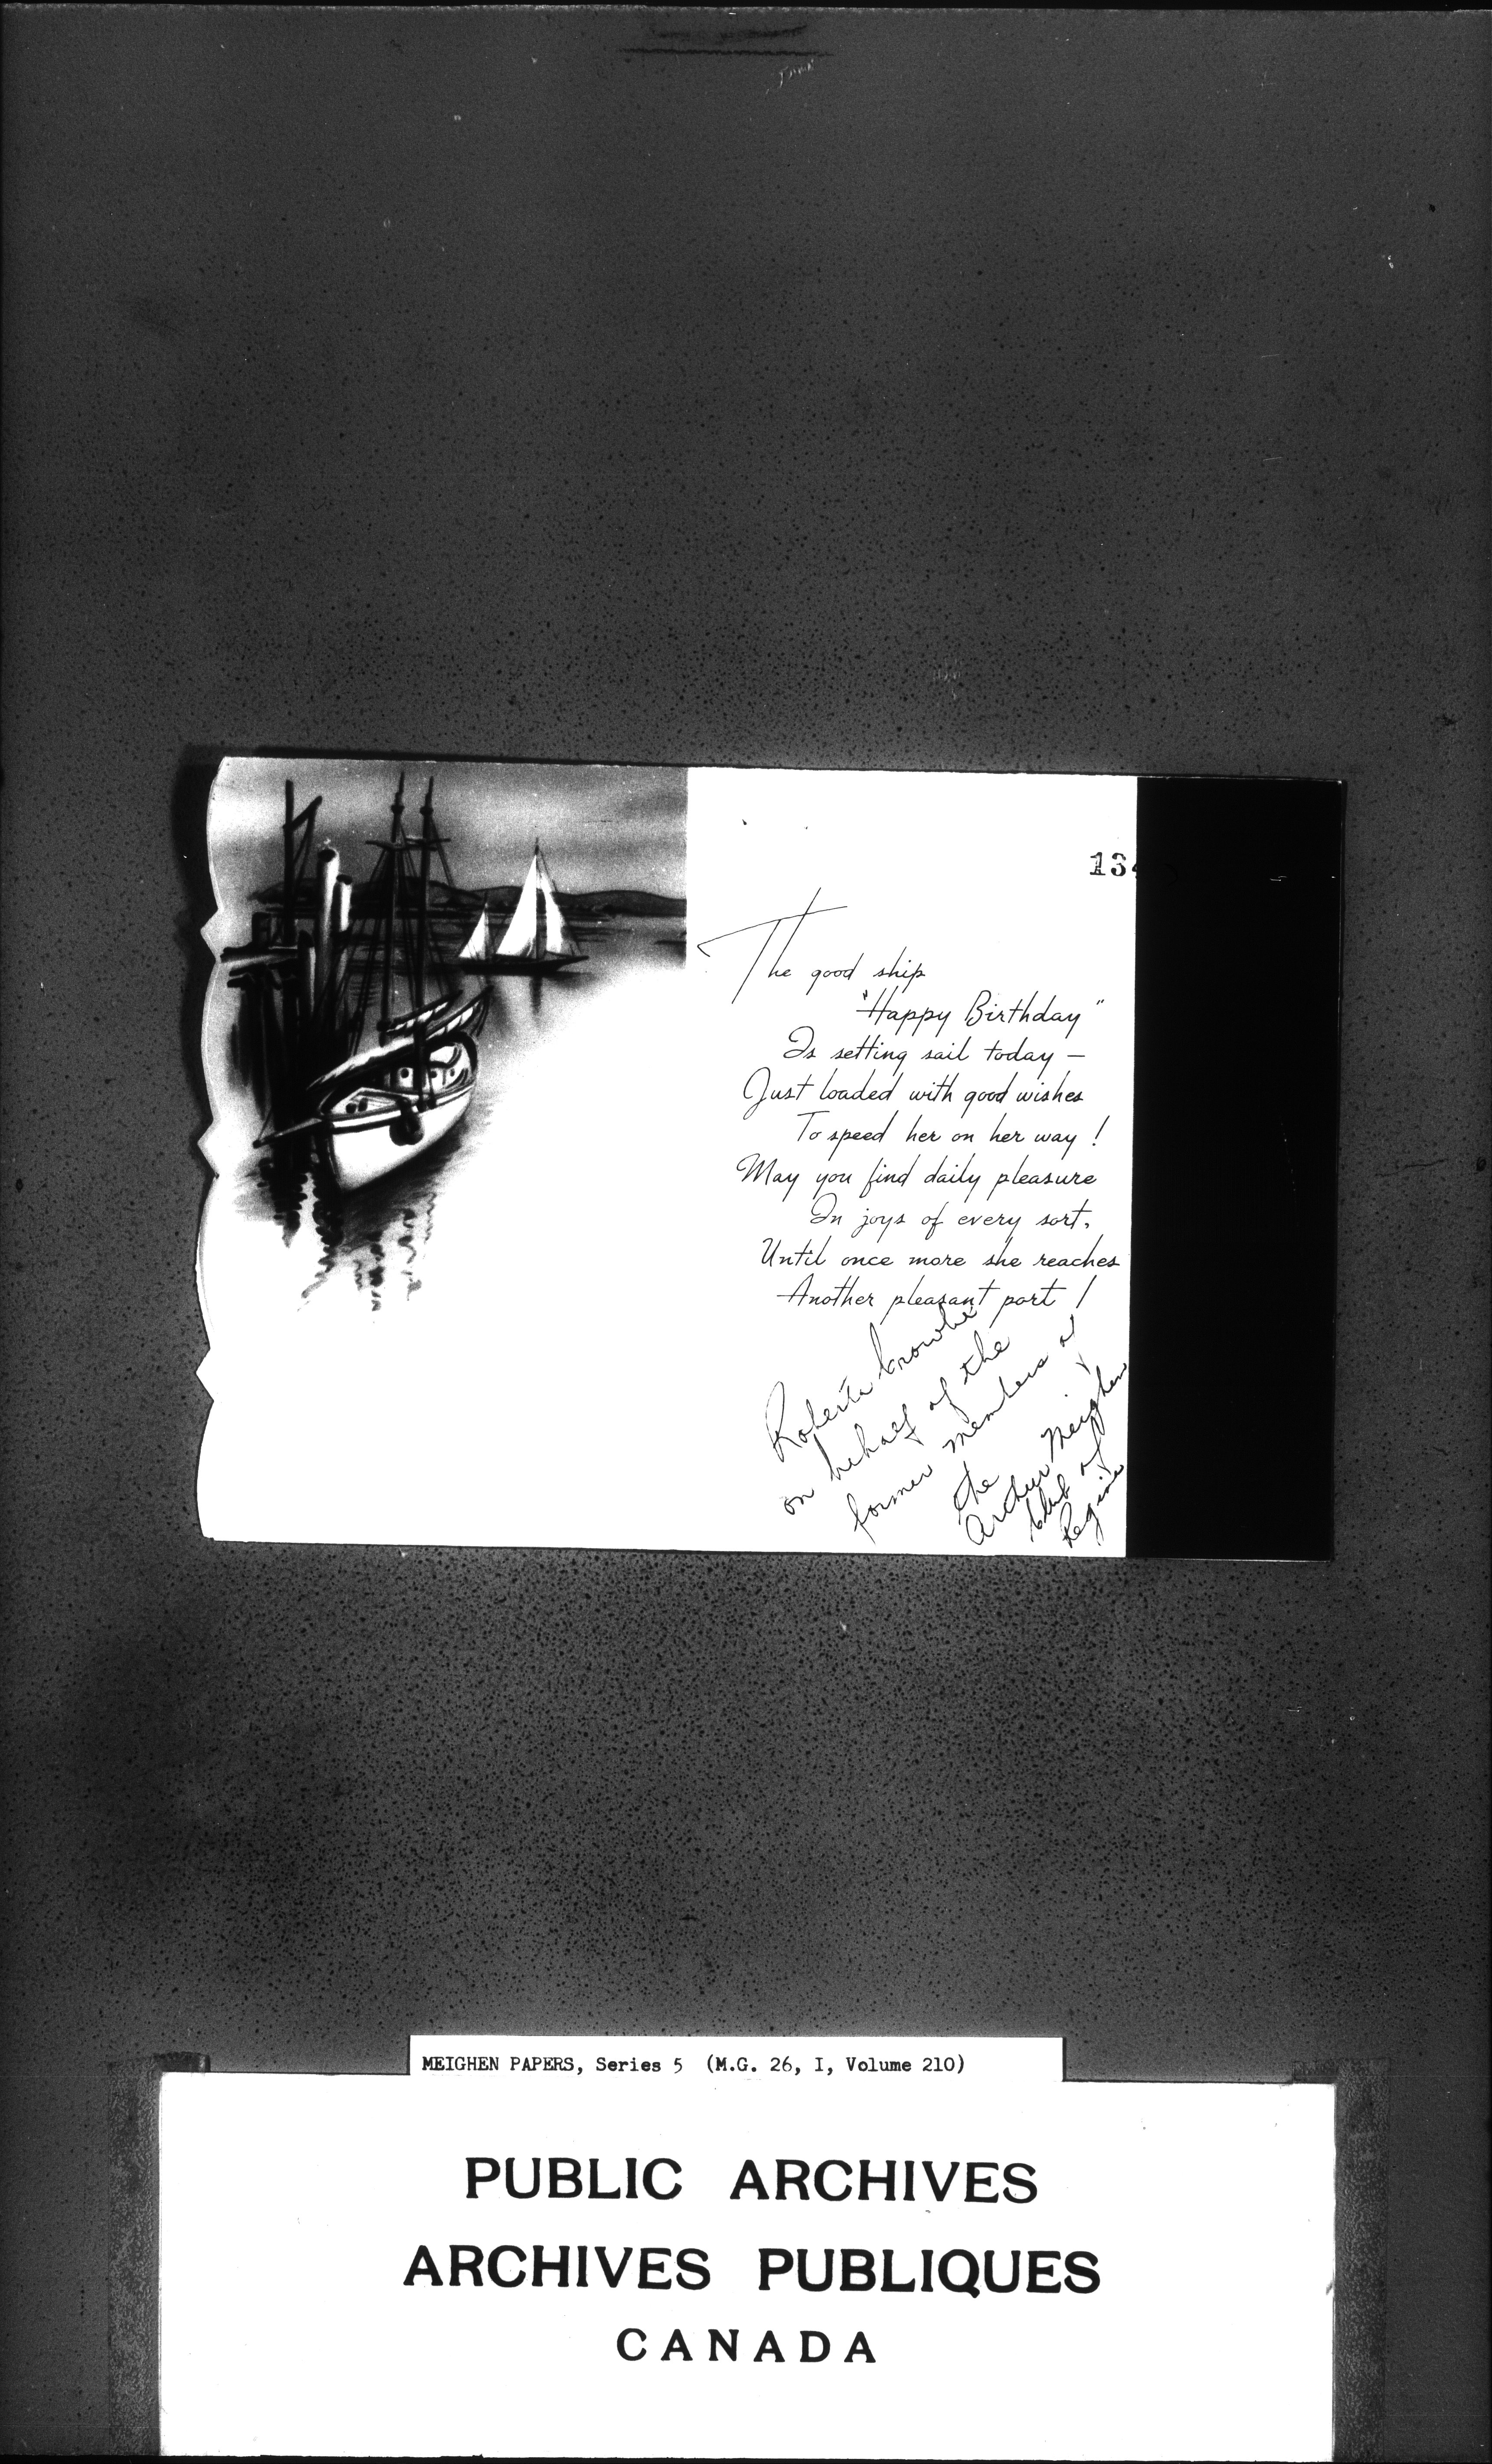 134
The good ship
"Happy Birthday"
Is setting sail today —
Just loaded with good wishes
To speed her on her way!
May you find daily pleasure
In joys of every sort,
Until once more she reaches
Another pleasant port!
Roberta
on behalf of the
former members of
the
Arthur Meighen
Club of
Regina
MEIGHEN PAPERS, Series 5 (M.G. 26, I, Volume 210)
PUBLIC ARCHIVES
ARCHIVES PUBLIQUES
CANADA